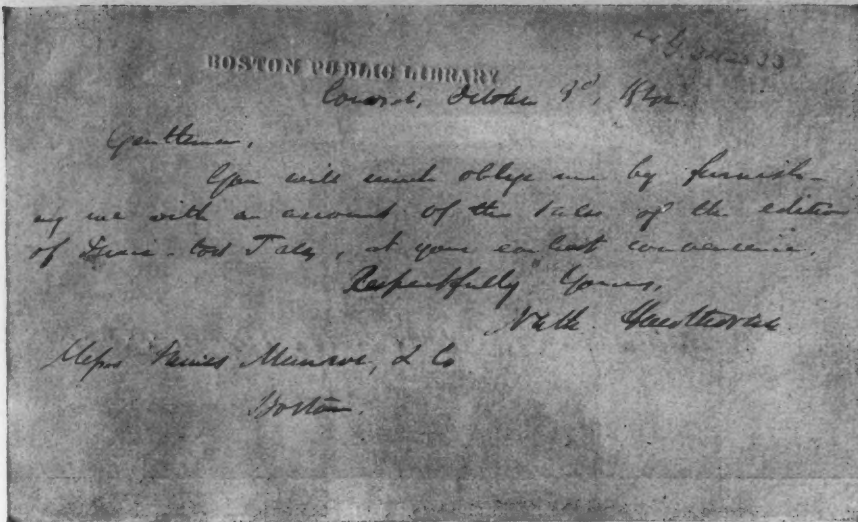 BOSTON PUBLIC LIBRARY
Concord, October 3d,
Gentlemen,
You will much oblige me by furnish-
ing me with an account of the sales of the edition
of Twice-told Tales, at your earliest convenience.
Respectfully Yours,
Nath. Hawthorne
Messrs James Munroe, & Co
Boston.